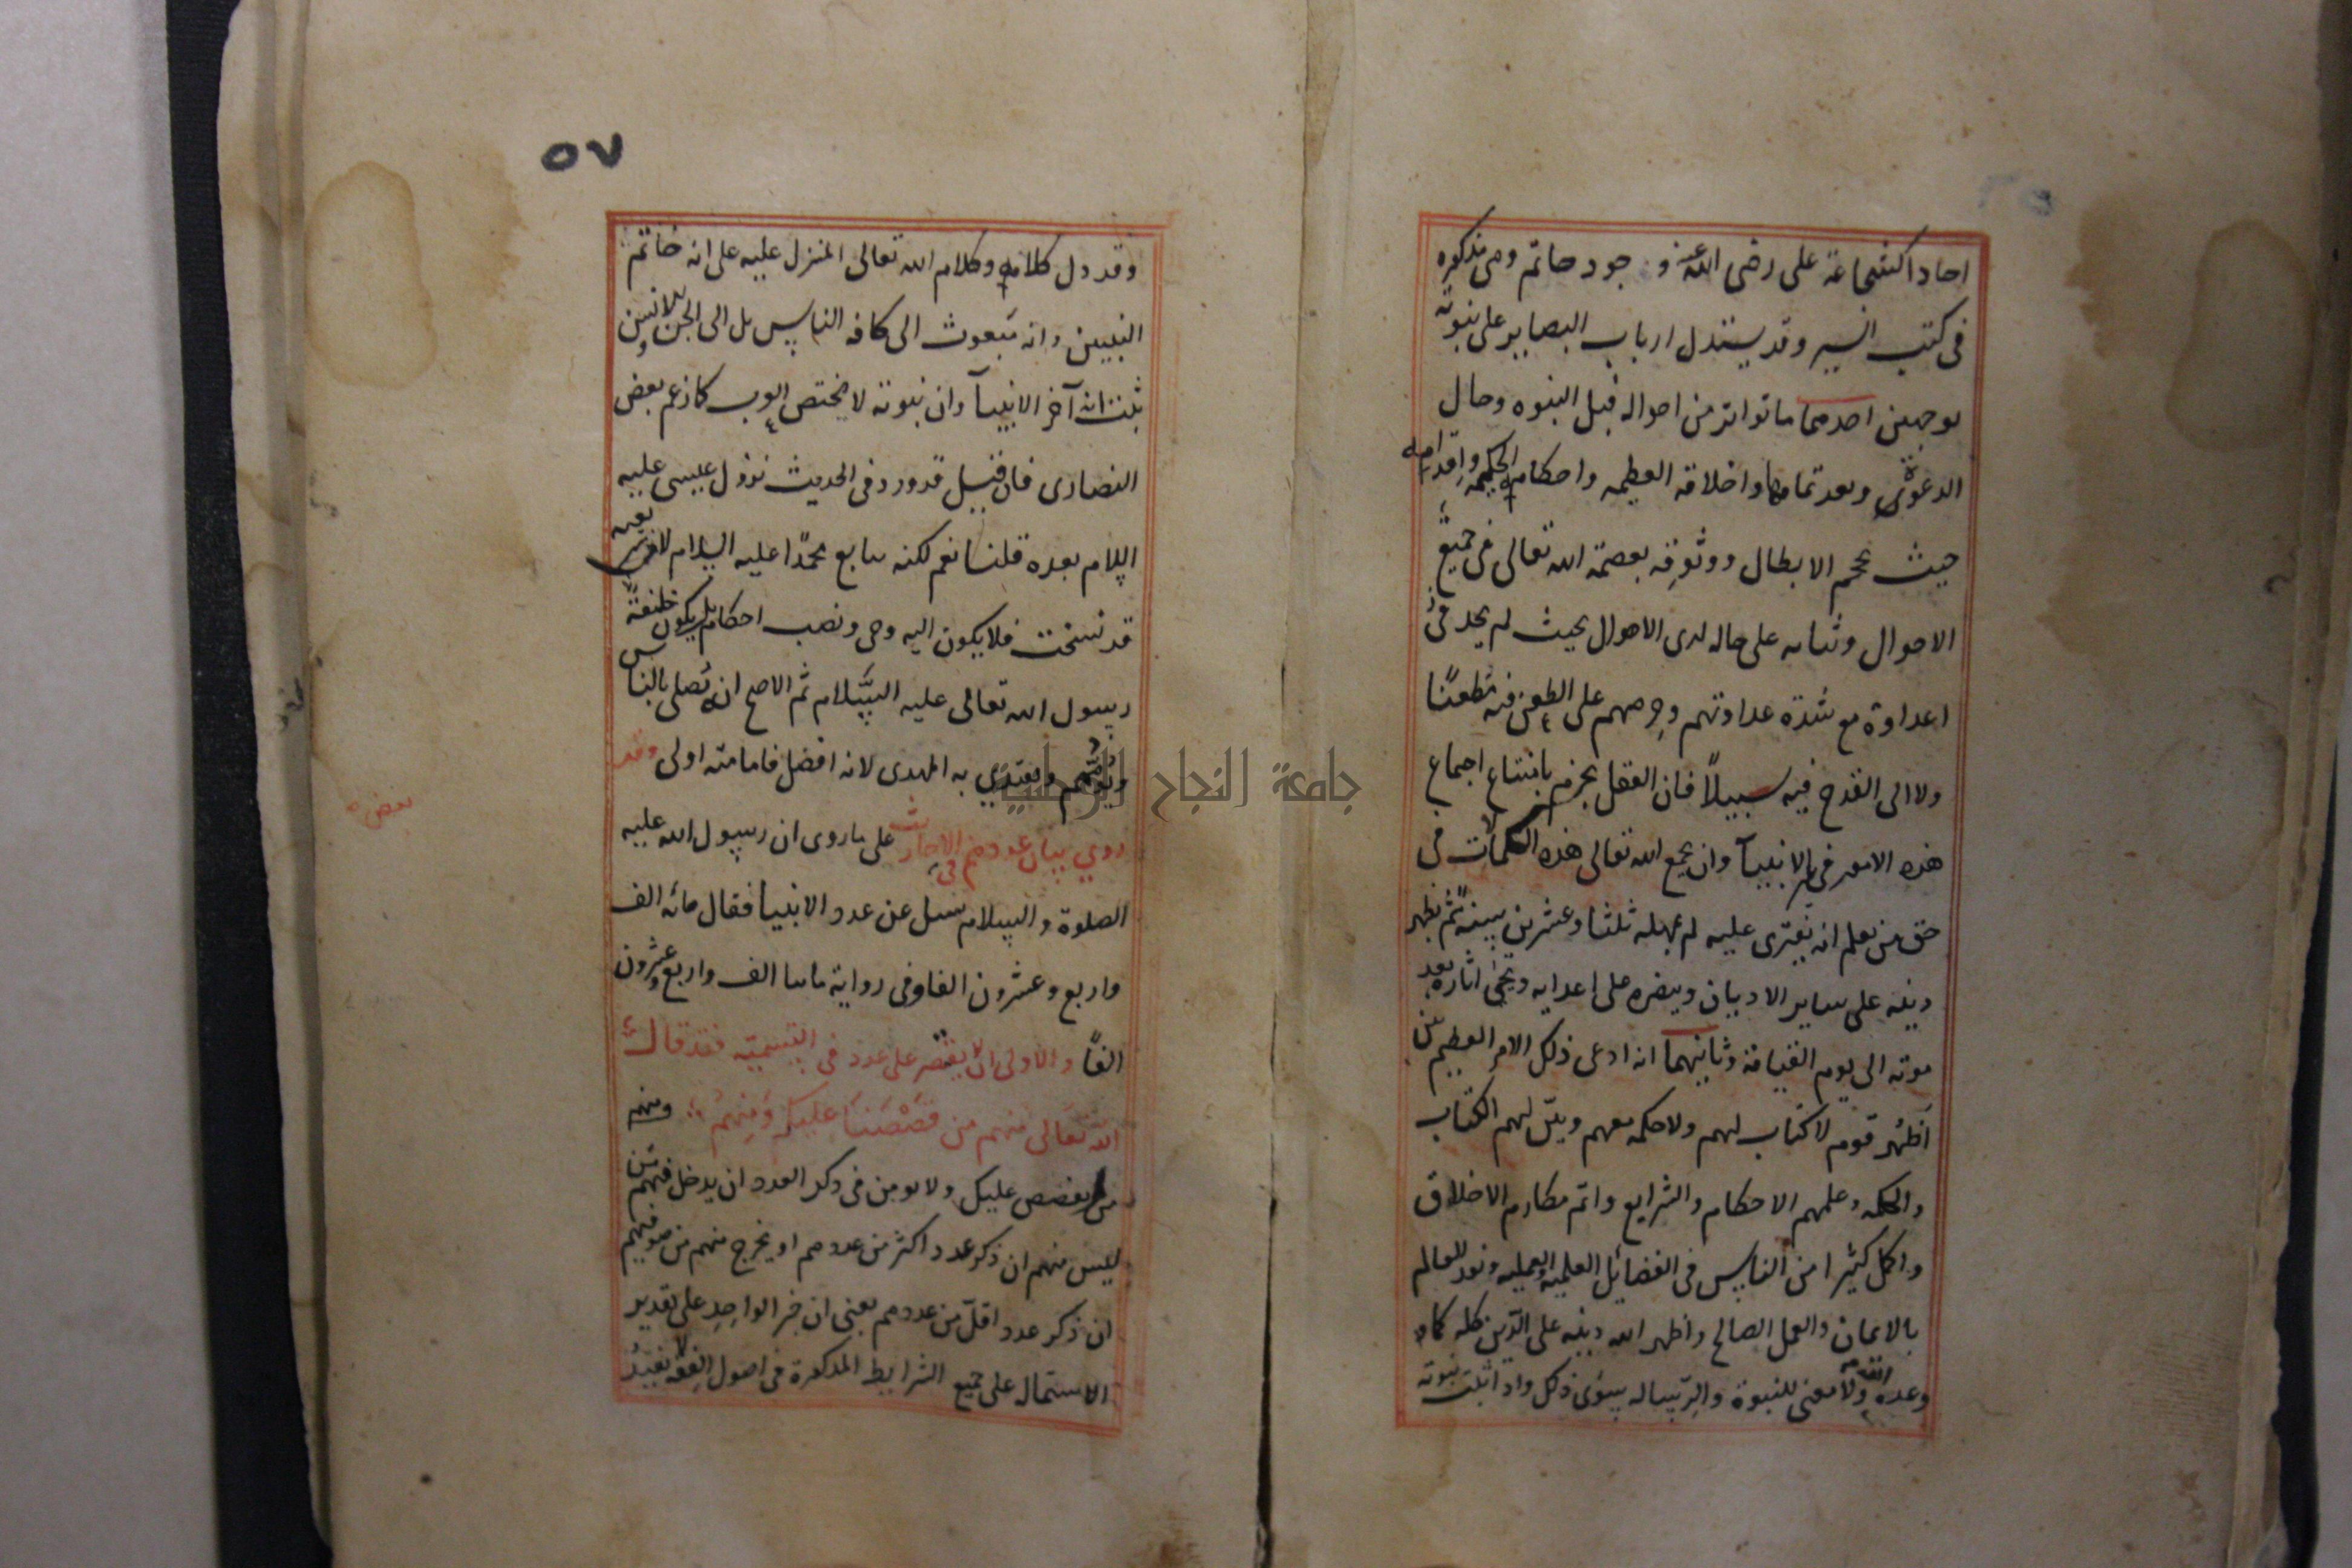 احادا كشجاعة على رضى الله عنه و جود حاتم وهى مذكوره
فى كتب السير وقد يستدل ارباب البصاير على نبوته
بوجهين احدهما ما تواتر من احواله قبل النبوه وحال
الدعوة وبعد تمامها واخلاقه العظيمه واحكامه الحكيمه واقدامه
حيث يحجم الابطال ووثوقه بعصمة الله تعالى فى جميع
الاحوال وثباته على حاله لدى الاهوال بحيث لم يجد
اعداوة مع شدة عداوتهم وحرصهم على الطعن فيه مطعنًا
ولا الى القدح فيه سبيلاً فان العقل يجزم بامتناع اجتماع
هذه الامور فى غير الانبيآ وان يجمع الله تعالى هذه الكمالات فى
حق من يعلم انه يفترى عليه ثم يمهله ثلثا وعشرين سنةً ثم يظهر
دينه على ساير الاديان وينصره على اعدايه ويحيى اثاره بعد
موته الى يوم القيامة وثانيهما انه ادعى ذلك الامر العظيم بين
اظهر قوم لا كتاب لهم ولا حكمه معهم وبين لهم الكتاب
والحكمه وعلمهم الاحكام والشرايع واتم مكارم الاخلاق
واكمل كثيرا من الناس فى الفضائل العلميه والعمليه ونور العالم
بالايمان والعمل الصالح واظهر الله دينه على الدين كله كما
وعده الله ولا معنى للنبوة والرساله سوى ذلك واذا ثبت نبوته
٥٧
وقد دل كلامه وكلام الله تعالى المنزل عليه على انه خاتم
النبيين وانه مبعوث الى كافه الناس بل الى الجن والانس
ثبت انه آخر الانبيآ وان نبوته لا يختص بالعرب كما زعم بعض
النصارى فان قيل قد ورد فى الحديث نزول عيسى عليه
السلام بعده قلنا نعم لكنه يتابع محمدًا عليه السلام لان شريعته
قد نسخت فلا يكون اليه وحى ونصب احكام بل يكون خليفةً
رسول الله تعالى عليه السلام ثم الاصح انه يصلى بالناس
ويؤمهم ويقتدي به المهدى لانه افضل فامامته اولى وقد
روي بيان عددهم فى بعض الاحاديث على ما روى ان رسول الله عليه
الصلوة والسلام سيل عن عدد الانبيا فقال مائه الف
واربع وعشرون الفا وفى رواية ماىىا الف واربع وعشرون
الفًا والاولى ان لا يقتصر على عدد فى التسمية فقد قال
الله تعالى منهم من قصصنا عليك ومنهم ومنهم
من لم نقصص عليك ولا يومن فى ذكر العدد ان يدخل فيهم من
ليس منهم ان ذكر عدد اكثر من عددهم او يخرج منهم من هو فيهم
ان ذكر عدد اقل من عددهم يعنى ان خبر الواحد على تقدير
الاشتمال على جميع الشرايط المذكورة فى اصول الفقه لا يفيد
جامعة النجاح الوطنية